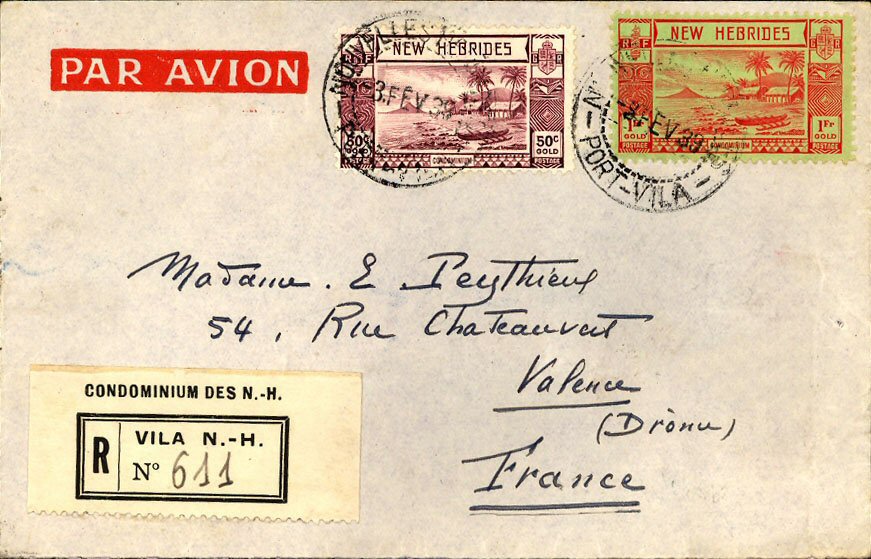 PAR AVION
NEW HEBRIDES
RF
GR
50c GOLD
50c GOLD
POSTAGE
CONDOMINIUM
POSTAGE
NOUVELLES
3 FEV 39
NEW HEBRIDES
RF
GR
1Fr GOLD
1Fr GOLD
POSTAGE
CONDOMINIUM
POSTAGE
FEV 39
PORT-VILA
Madame. E Peythieu
54, Rue Chateauvert
Valence
(Drôme)
France
CONDOMINIUM DES N.-H.
R
VILA N.-H.
N° 611